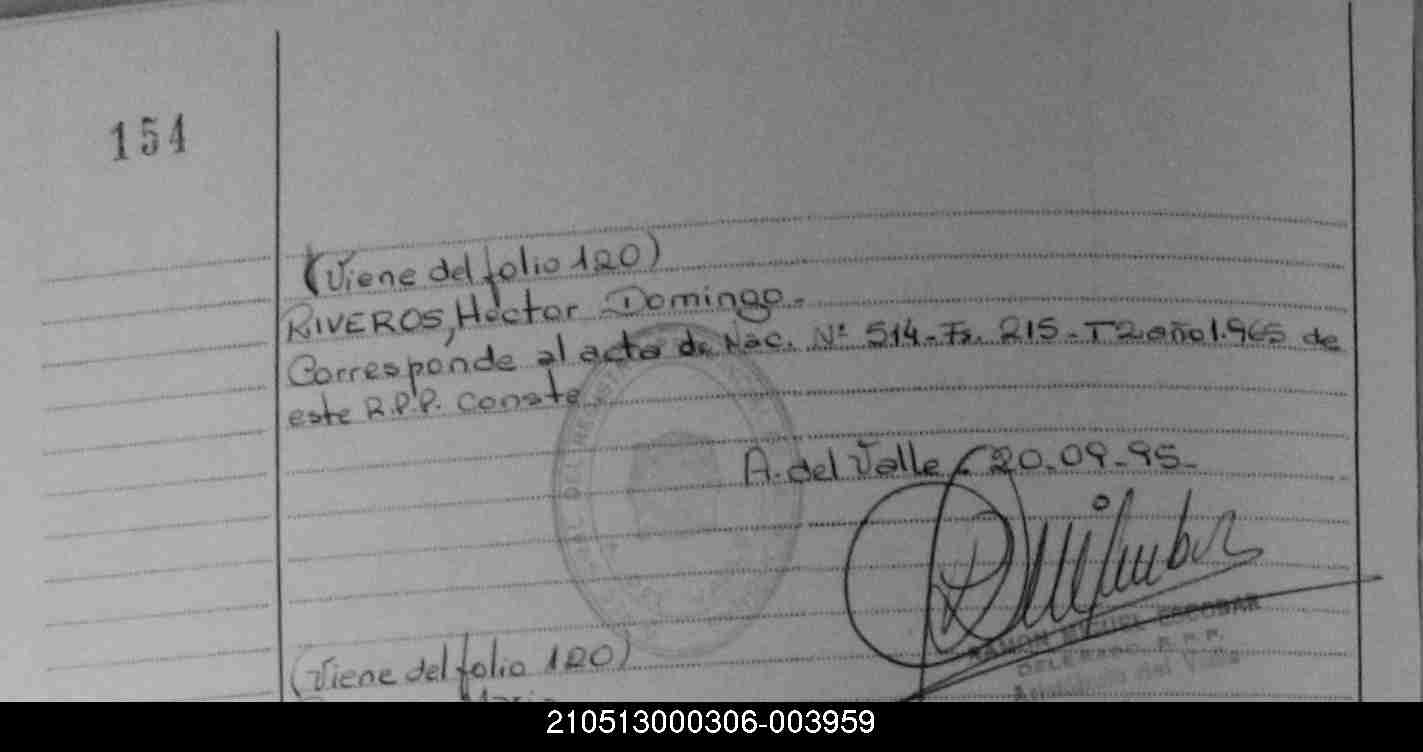 154
(Viene del folio 120)
RIVEROS, Héctor Domingo.
Corresponde al acta de Nac. Nº 514-Fº. 215-T2 año 1.965 de
este R.P.P. Conste
A. del Valle, 20-09-95-
RAMON MIGUEL ESCOBAR
DELEGADO R.P.P.
Aristóbulo del Valle
(Viene del folio 120)
210513000306-003959